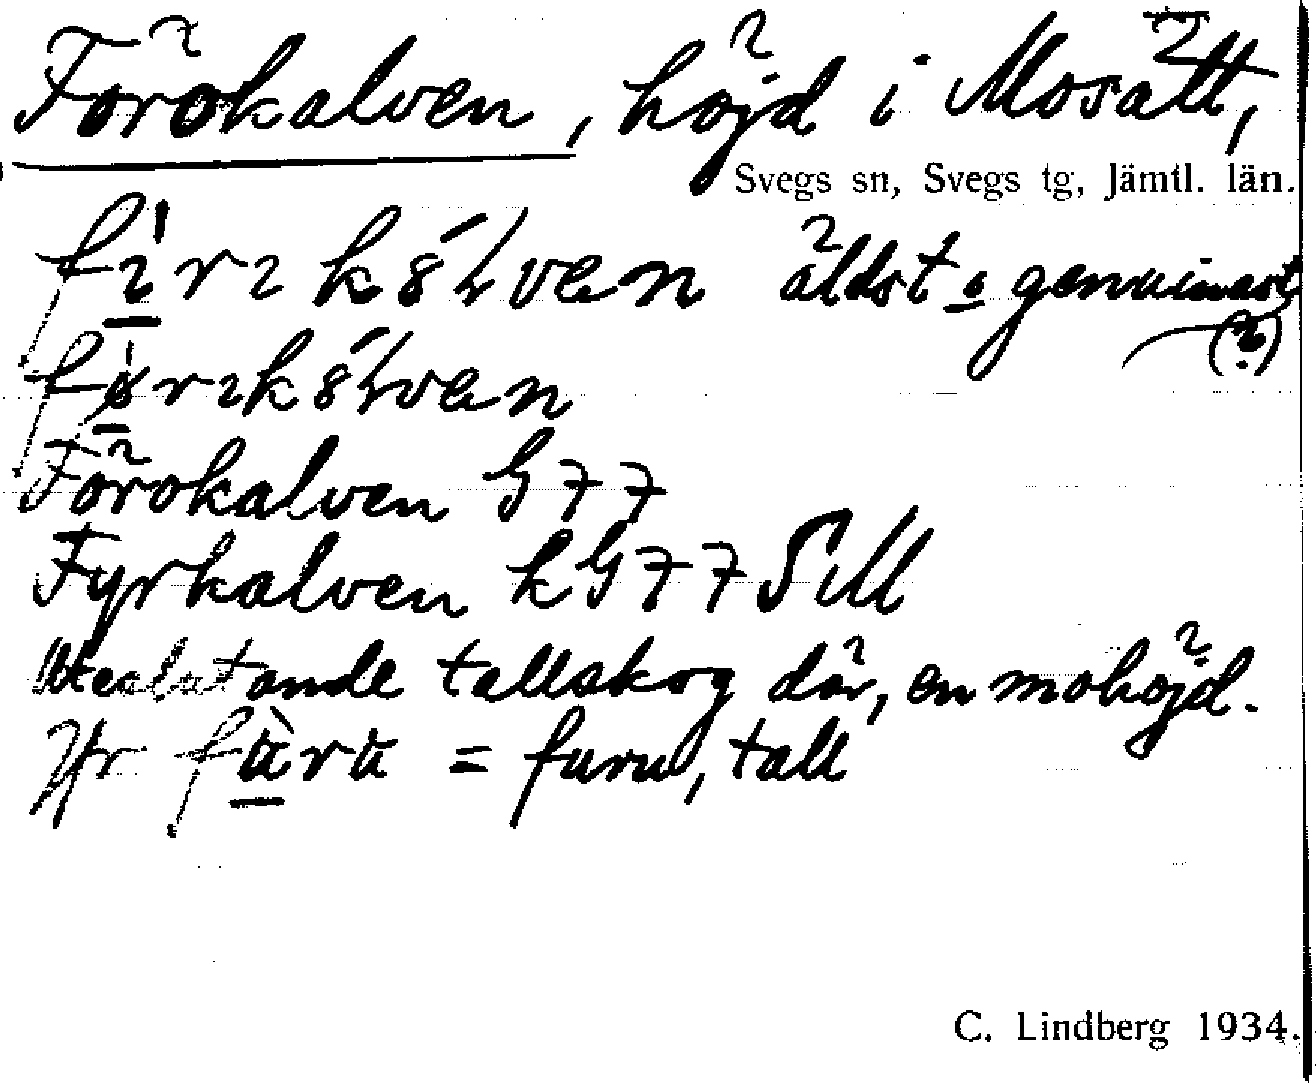 Förokalven, höjd i Mosätt,
Svegs sn, Svegs tg, Jämtl. län.
äldst o genuinast
(?)
Förokalven G 77
Fyrkalven k G 77 Sill
Uteslutande tallskog där, en mohöjd.
Jfr fùru = furu, tall
C. Lindberg 1934.